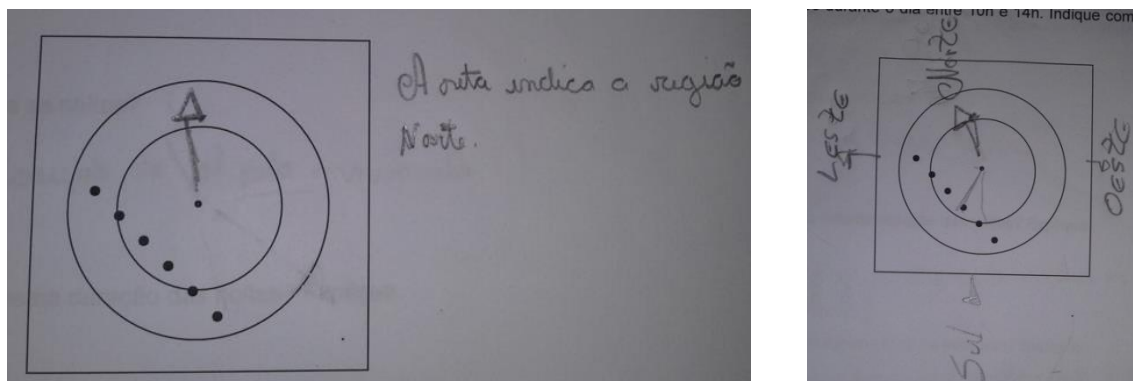 A reta indica a região
Norte.
durante o dia entre 10h e 14h. Indique com
Norte
Leste
Oeste
Sul